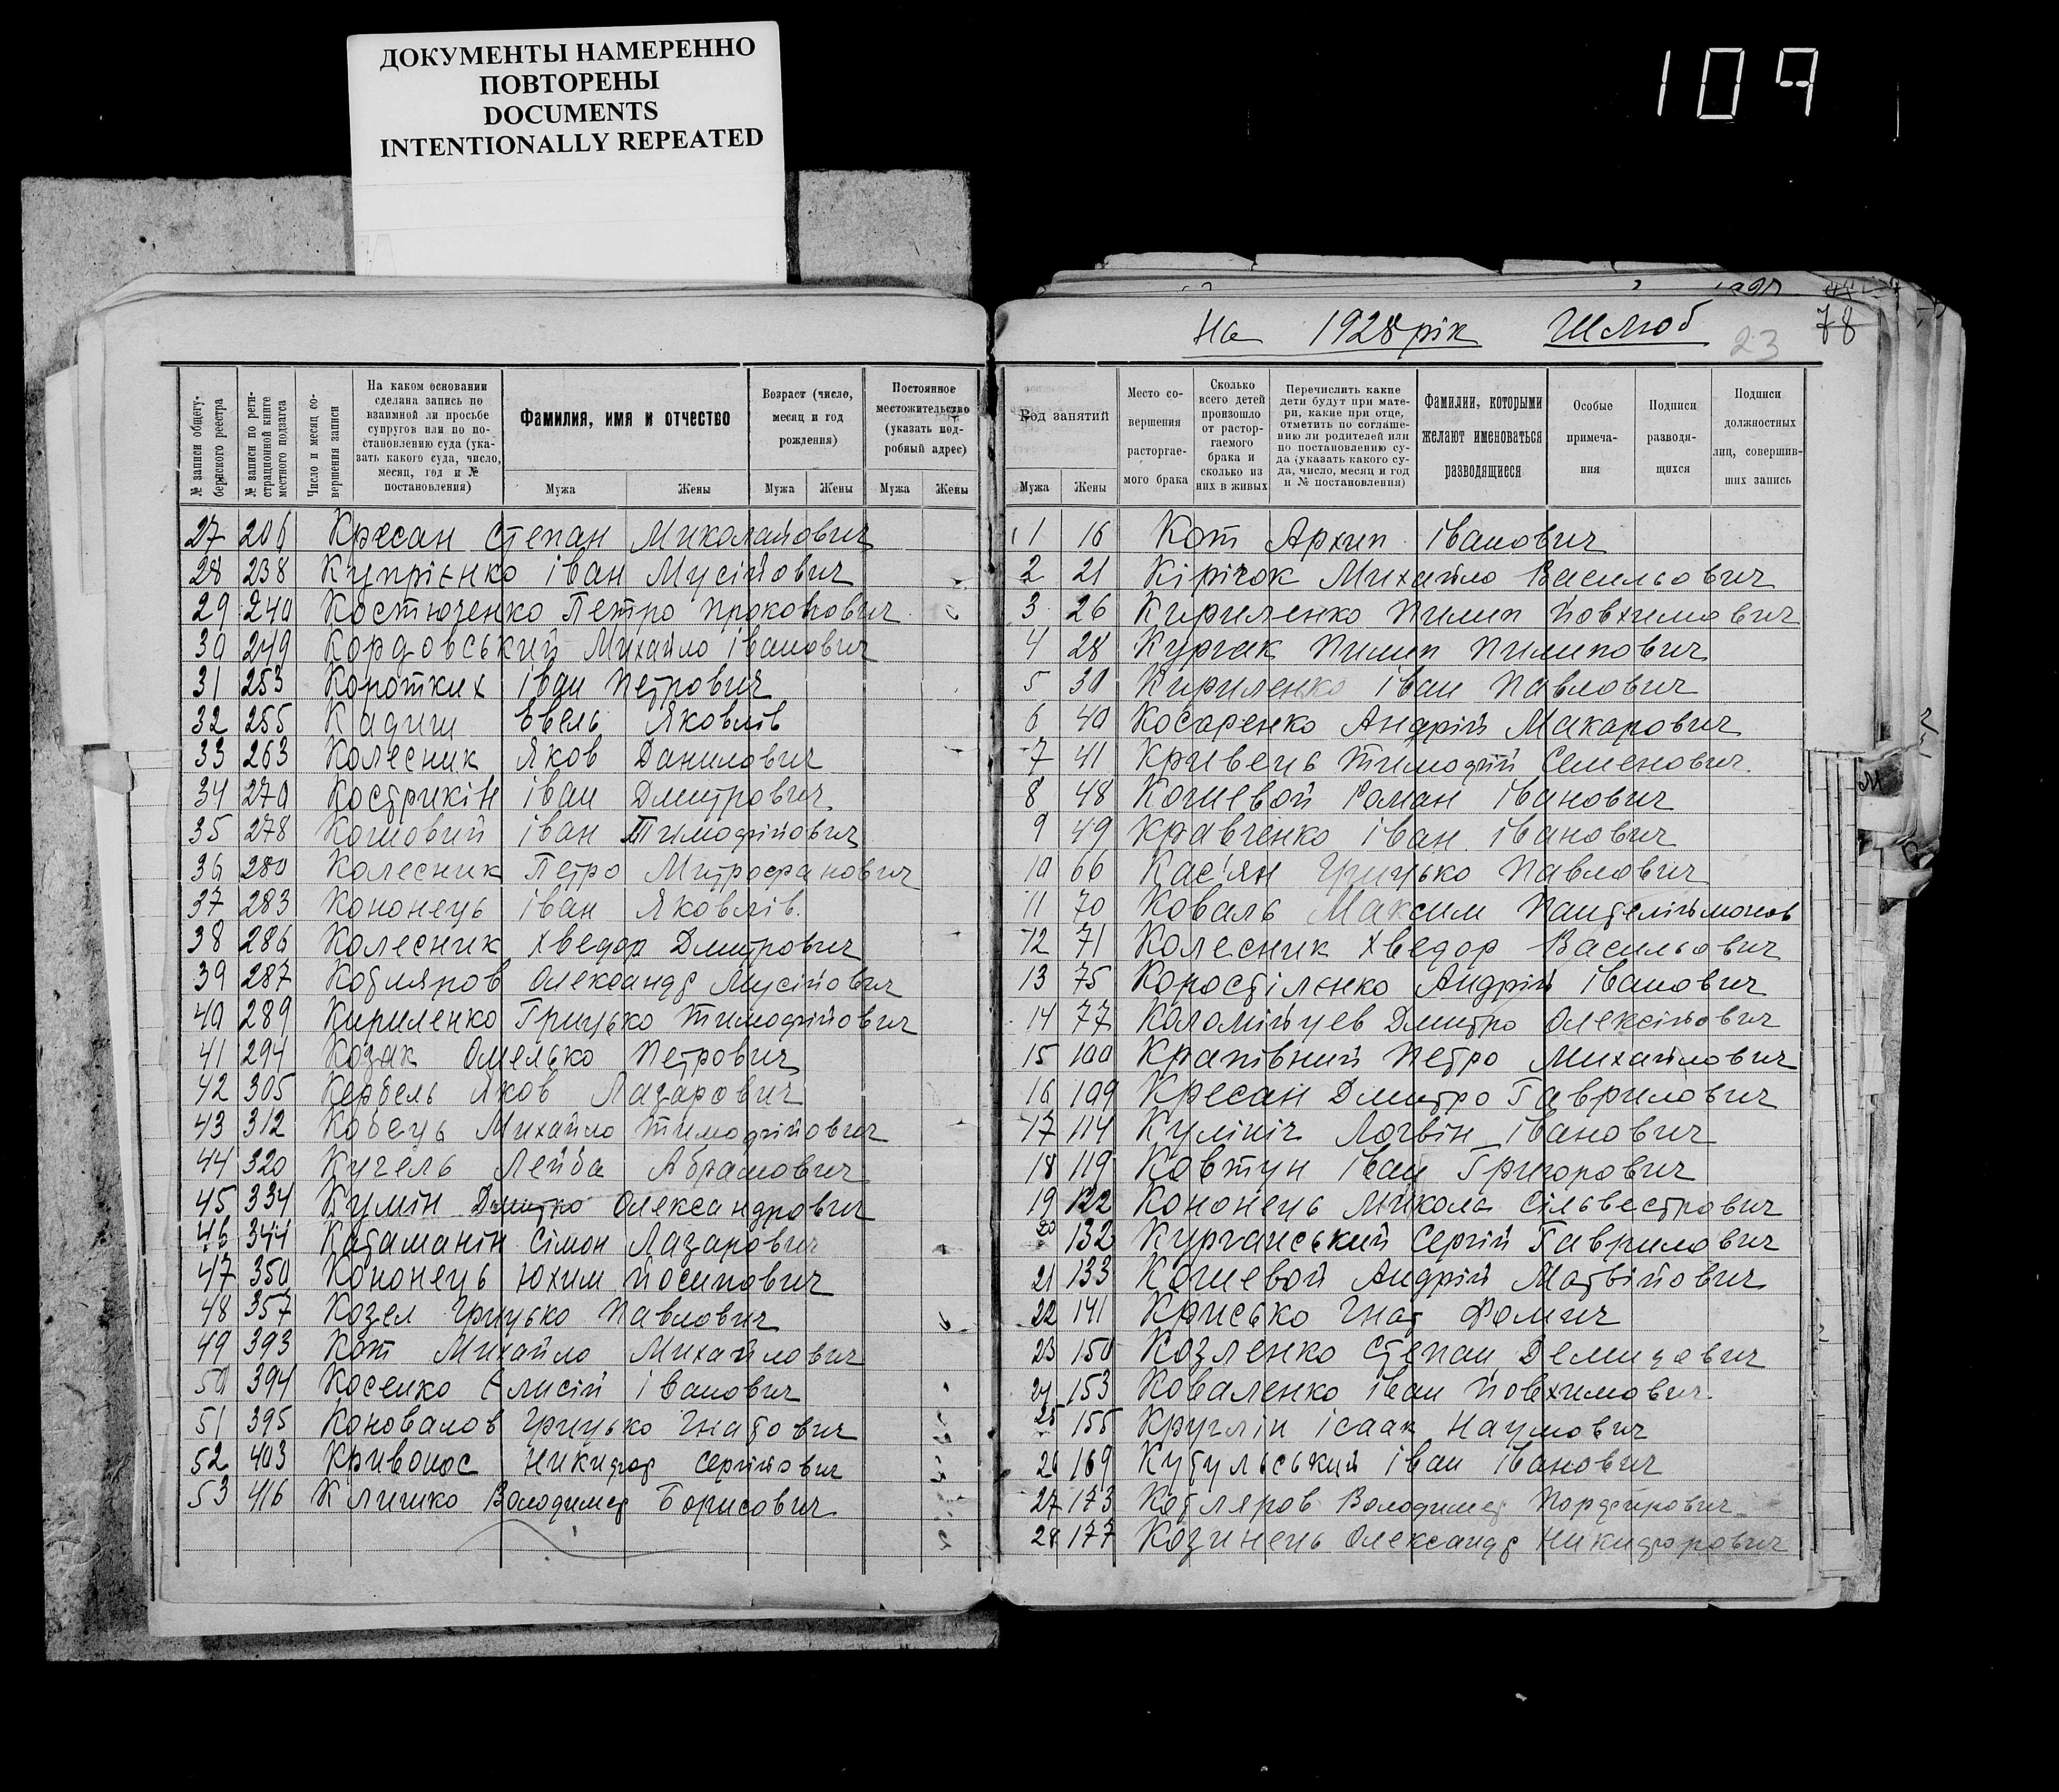 ДОКУМЕНТЫ НАМЕРЕННО
ПОВТОРЕНЫ
DOCUMENTS
INTENTIONALLY REPEATED
109
№ записи общегу-
бернского реестра
№ записи по реги-
страционной книге
местного подзагса
Число и месяц со-
вершения записи
На каком основании
сделана запись по
взаимной ли просьбе
супругов или по по-
становлению суда (ука-
зать какого суда, число,
месяц, год и №
постановления)
Фамилия, имя и отчество
Мужа Жены
Возраст (число,
месяц и год
рождения)
Мужа Жены
Постоянное
местожительство
(указать под-
робный адрес)
Мужа Жены
27 206 Кресан Степан Миколайович
28 238 Купрієнко Іван Мусійович
29 240 Костюченко Петро Прокопович
30 249 Кордовський Михайло Іванович
31 253 Коротких Іван Петрович
32 255 Кадиш Евель Яковлів
33 263 Колесник Яков Данилович
34 270 Кострикін Іван Дмитрович
35 278 Кошовий Іван Тимофійович
36 280 Колесник Петро Митрофанович
37 283 Кононець Іван Яковлів.
38 286 Колесник Хведор Дмитрович
39 287 Котляров Олександр Мусійович
40 289 Кириленко Грицько Тимофійович
41 294 Козак Омелько Петрович
42 305 Кербель Яков Лазарович
43 312 Кобець Михайло Тимофійович
44 320 Кугель Лейба Абрамович
45 334 Кумін Дмитро Олександрович
46 344 Катаманін Сімон Лазарович
47 350 Кононець Юхим Йосипович
48 357 Козел Грицько Павлович
49 393 Кот Михайло Михайлович
50 394 Косенко Єлисій Іванович
51 395 Коновалов Грицько Гнатович
52 403 Кривонос Никифор Сергійович
53 416 Клишко Володимер Борисович
На 1928 рік Шлюб
23
78
Род занятий
Мужа Жены
Место со-
вершения
расторгае-
мого брака
Сколько
всего детей
произошло
от растор-
гаемого
брака и
сколько из
них в живых
Перечислить какие
дети будут при мате-
ри, какие при отце,
отметить по соглаше-
нию ли родителей или
по постановлению су-
да (указать какого су-
да, число, месяц и год
и № постановления)
Фамилии, которыми
желают именоваться
разводящиеся
Особые
примеча-
ния
Подписи
разводя-
щихся
Подписи
должностных
лиц, совершив-
ших запись
1 16 Кот Архип Іванович
2 21 Кірічок Михайло Васильович
3 26 Кириленко Пилип Йовхимович
4 28 Кургак Пилип Пилипович
5 30 Кириленко Іван Павлович
6 40 Косаренко Андрій Макарович
7 41 Кривець Тимофій Семенович.
8 48 Кошевой Роман Іванович
9 49 Кравченко Іван Іванович
10 66 Кас'ян Грицько Павлович
11 70 Коваль Максим Пантеліймонов
12 71 Колесник Хведор Васильович
13 75 Коростіленко Андрій Іванович
14 77 Коломійцев Дмитро Олексійович
15 100 Крапівний Петро Михайлович
16 109 Кресан Дмитро Гаврилович
17 114 Кулініч Логвін Іванович
18 119 Ковтун Іван Григорович
19 122 Кононець Микола Сільвестрович
20 132 Курганський Сергій Гаврилович
21 133 Кошевой Андрій Матвійович
22 141 Крисько Гнат Фомич
23 150 Козленко Степан Демидович
24 153 Коваленко Іван Йовхимович
25 155 Круглін Ісаак Наумович
26 169 Кутульський Іван Іванович
27 173 Котляров Володимер Порфирович
28 177 Козинець Олександр Никифорович